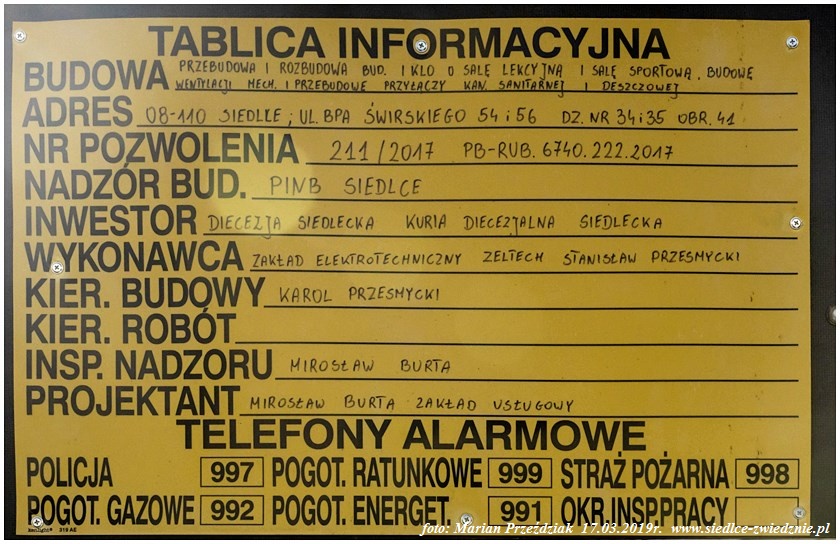 TABLICA INFORMACYJNA
BUDOWA PRZEBUDOWA I ROZBUDOWA BUD. I KLO O SALĘ LEKCYJNĄ I SALĘ SPORTOWĄ, BUDOWĘ
WENTYLACJI MECH. I PRZEBUDOWĘ PRZYŁĄCZY KAN. SANITARNEJ I DESZCZOWEJ
ADRES 08-110 SIEDLCE; UL. BPA ŚWIRSKIEGO 54 i 56 DZ. NR 34 i 35 OBR. 41
NR POZWOLENIA 211/2017 PB-RUB. 6740.222.2017
NADZÓR BUD. PINB SIEDLCE
INWESTOR DIECEZJA SIEDLECKA KURIA DIECEZJALNA SIEDLECKA
WYKONAWCA ZAKŁAD ELEKTROTECHNICZNY ZELTECH STANISŁAW PRZESMYCKI
KIER. BUDOWY KAROL PRZESMYCKI
KIER. ROBÓT
INSP. NADZORU MIROSŁAW BURTA
PROJEKTANT MIROSŁAW BURTA ZAKŁAD USŁUGOWY
TELEFONY ALARMOWE
POLICJA 997 POGOT. RATUNKOWE 999 STRAŻ POŻARNA 998
POGOT. GAZOWE 992 POGOT. ENERGET. 991 OKR.INSP.PRACY
319 AE
foto: Marian Przeździak 17.03.2019r. www.siedlce-zwiedznie.pl